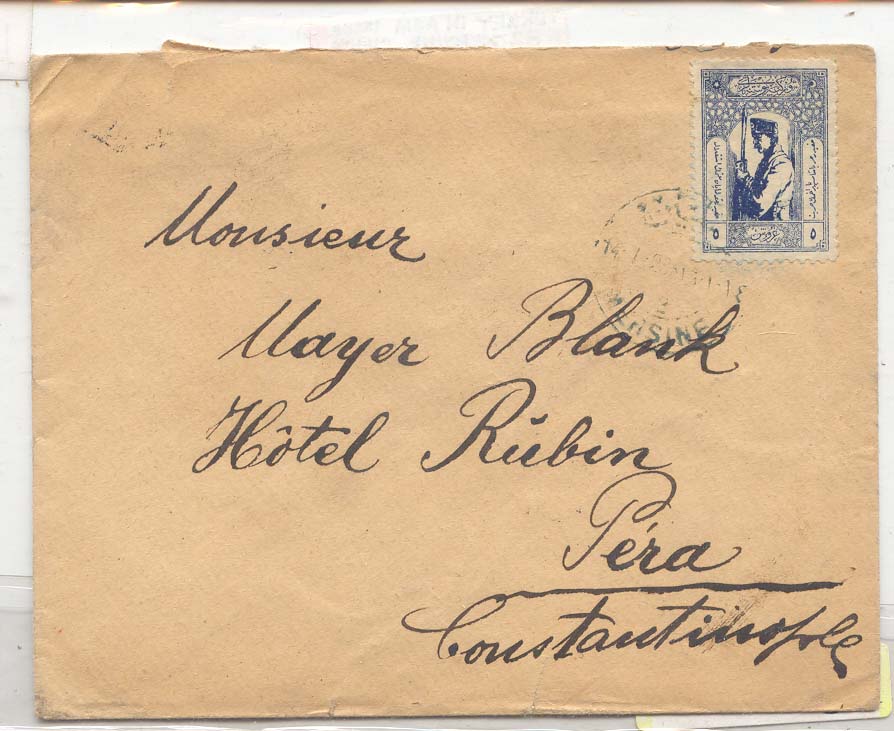 Monsieur
Mayer Blank
Hôtel Rŭbin
Péra
Constantinople
MERSINE
٥ غروش ٥